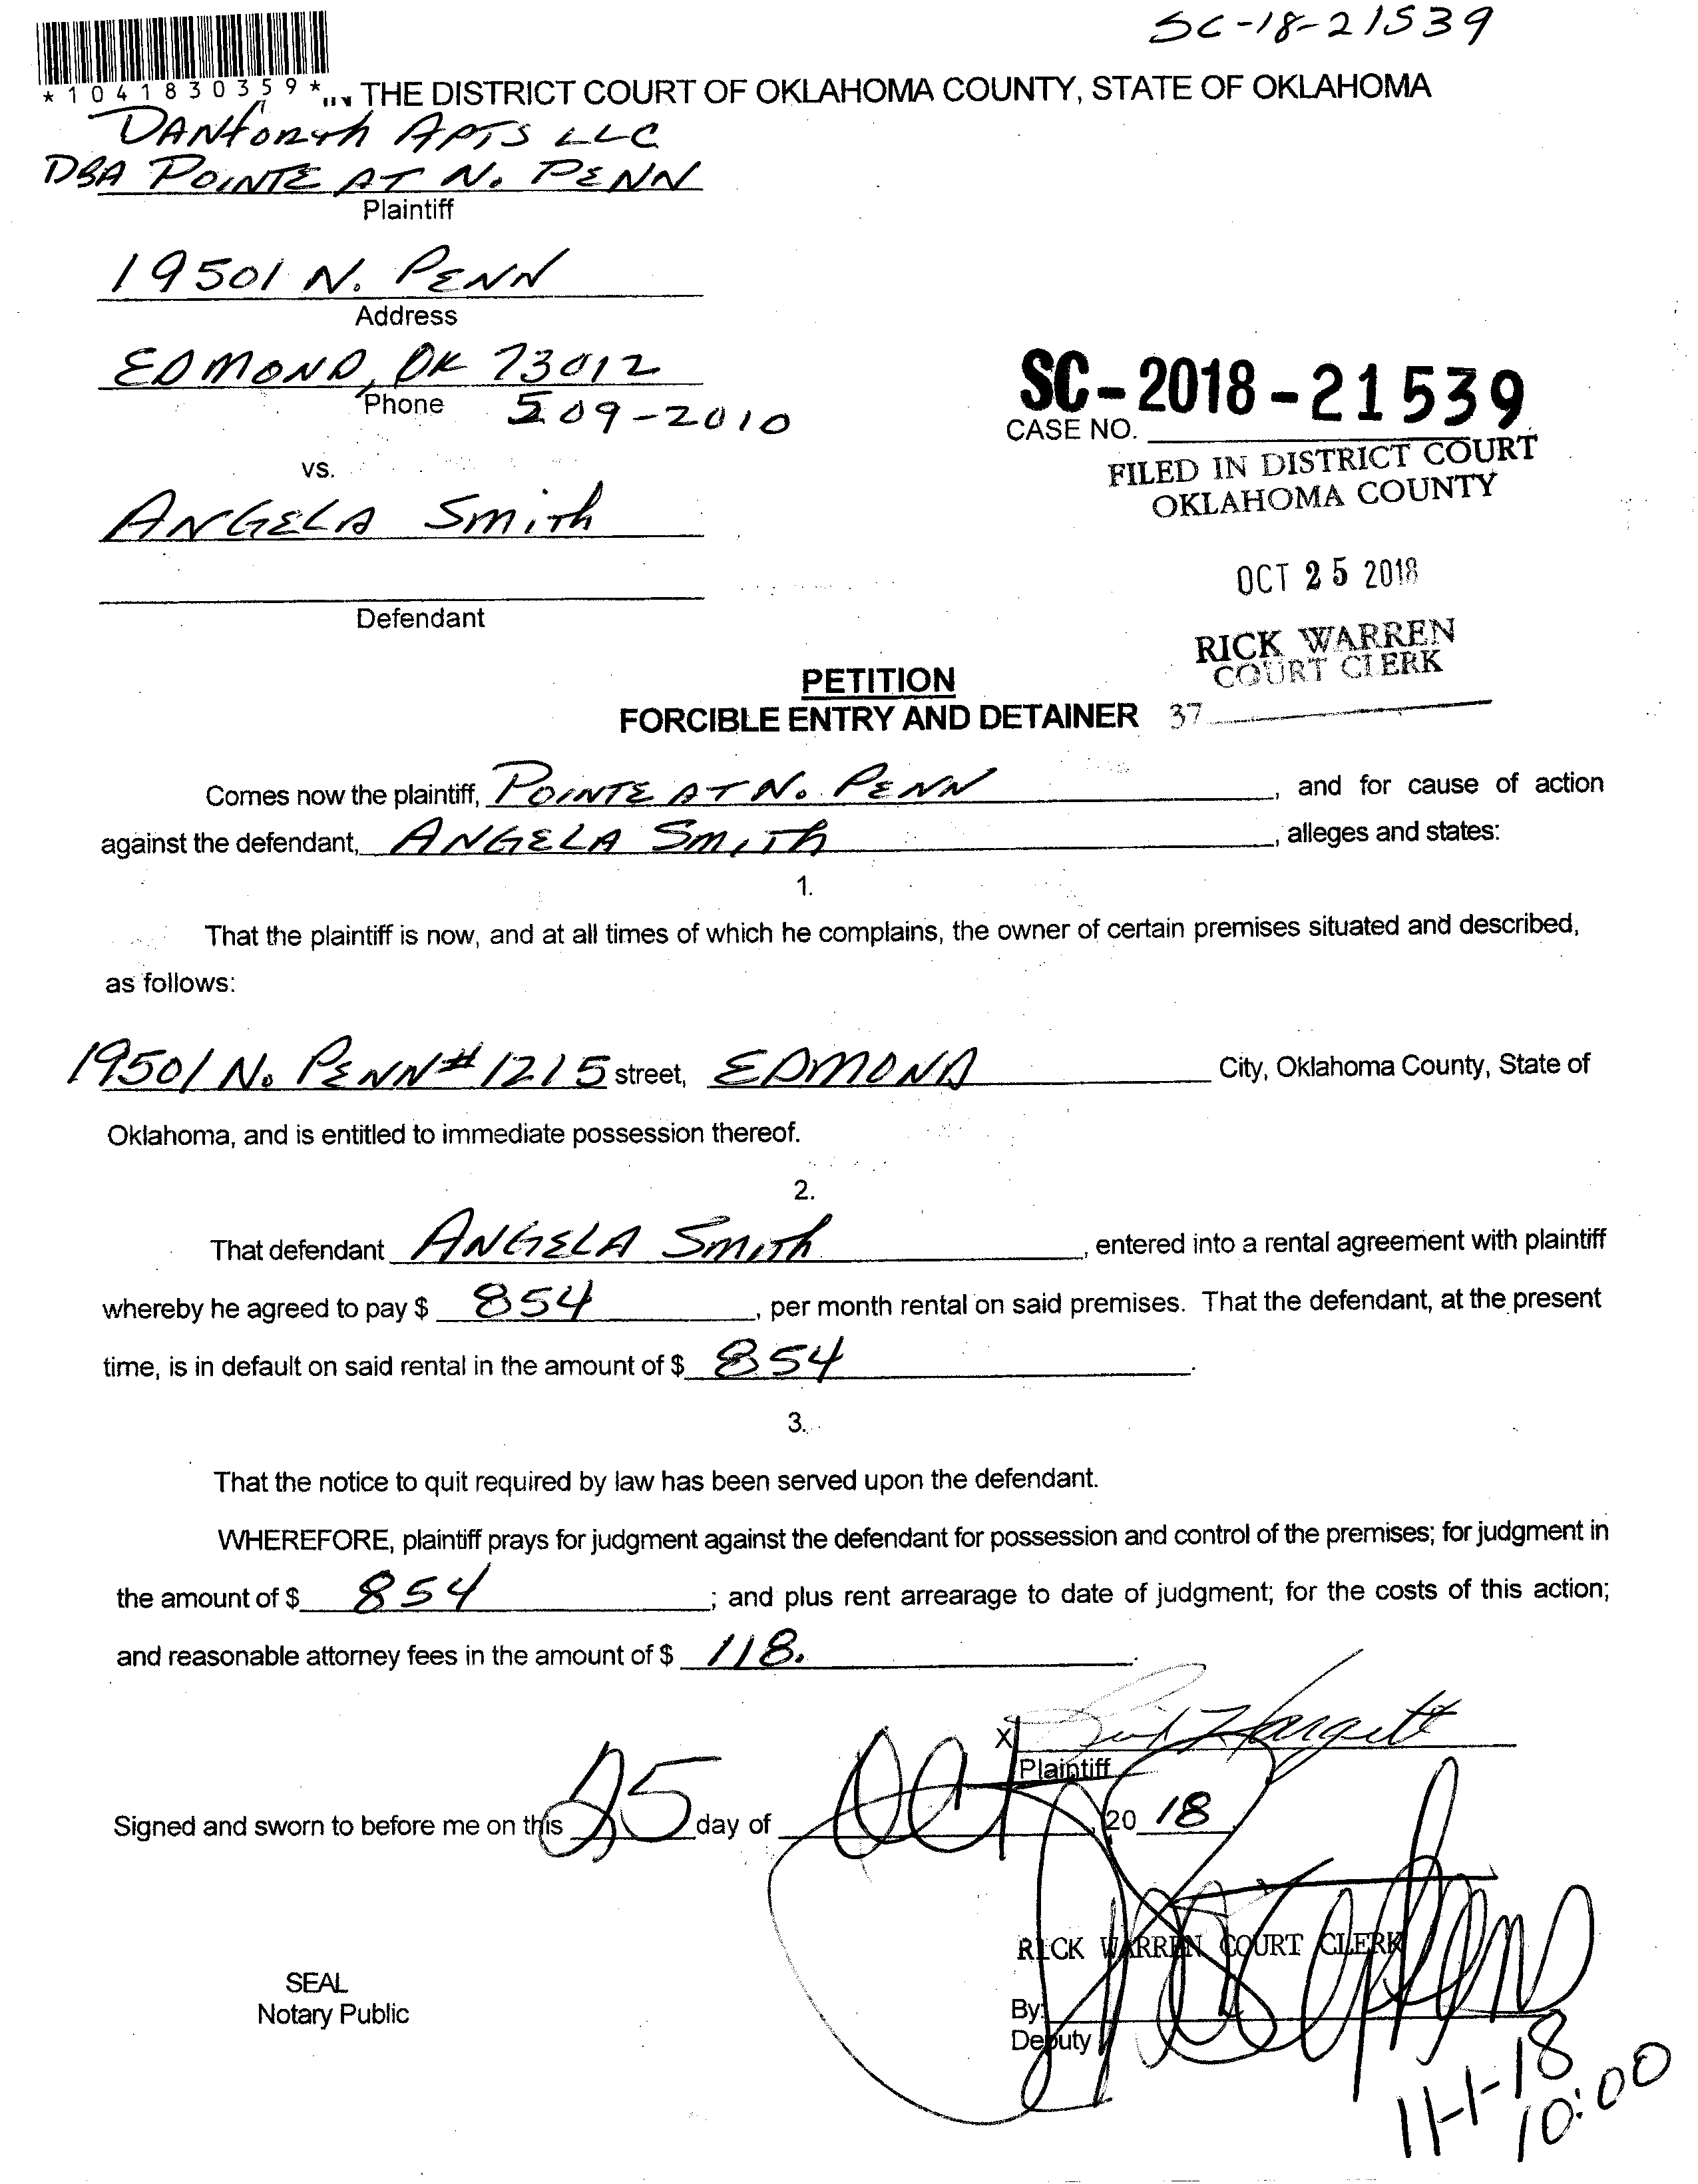 SC-18-21539
*1041830359*
IN THE DISTRICT COURT OF OKLAHOMA COUNTY, STATE OF OKLAHOMA
DANforth APTS LLC
DBA POINTE AT N. PENN
Plaintiff
19501 N. PENN
Address
EDMOND, OK 73012
Phone 509-2010
SC-2018-21539
CASE NO.
FILED IN DISTRICT COURT
OKLAHOMA COUNTY
vs.
ANGELA Smith
OCT 25 2018
Defendant
RICK WARREN
COURT CLERK
PETITION
FORCIBLE ENTRY AND DETAINER 37
Comes now the plaintiff, POINTE AT N. PENN, and for cause of action
against the defendant, ANGELA Smith, alleges and states:
1.
That the plaintiff is now, and at all times of which he complains, the owner of certain premises situated and described,
as follows:
19501 N. PENN # 1215 street, EDMOND City, Oklahoma County, State of
Oklahoma, and is entitled to immediate possession thereof.
2.
That defendant ANGELA Smith, entered into a rental agreement with plaintiff
whereby he agreed to pay $ 854, per month rental on said premises. That the defendant, at the present
time, is in default on said rental in the amount of $ 854.
3.
That the notice to quit required by law has been served upon the defendant.
WHEREFORE, plaintiff prays for judgment against the defendant for possession and control of the premises; for judgment in
the amount of $ 854; and plus rent arrearage to date of judgment; for the costs of this action;
and reasonable attorney fees in the amount of $ 118.
X Hargett
Plaintiff
Signed and sworn to before me on this 25 day of Oct, 20 18
RICK WARREN COURT CLERK
SEAL
Notary Public
By:
Deputy
11-1-18
10:00